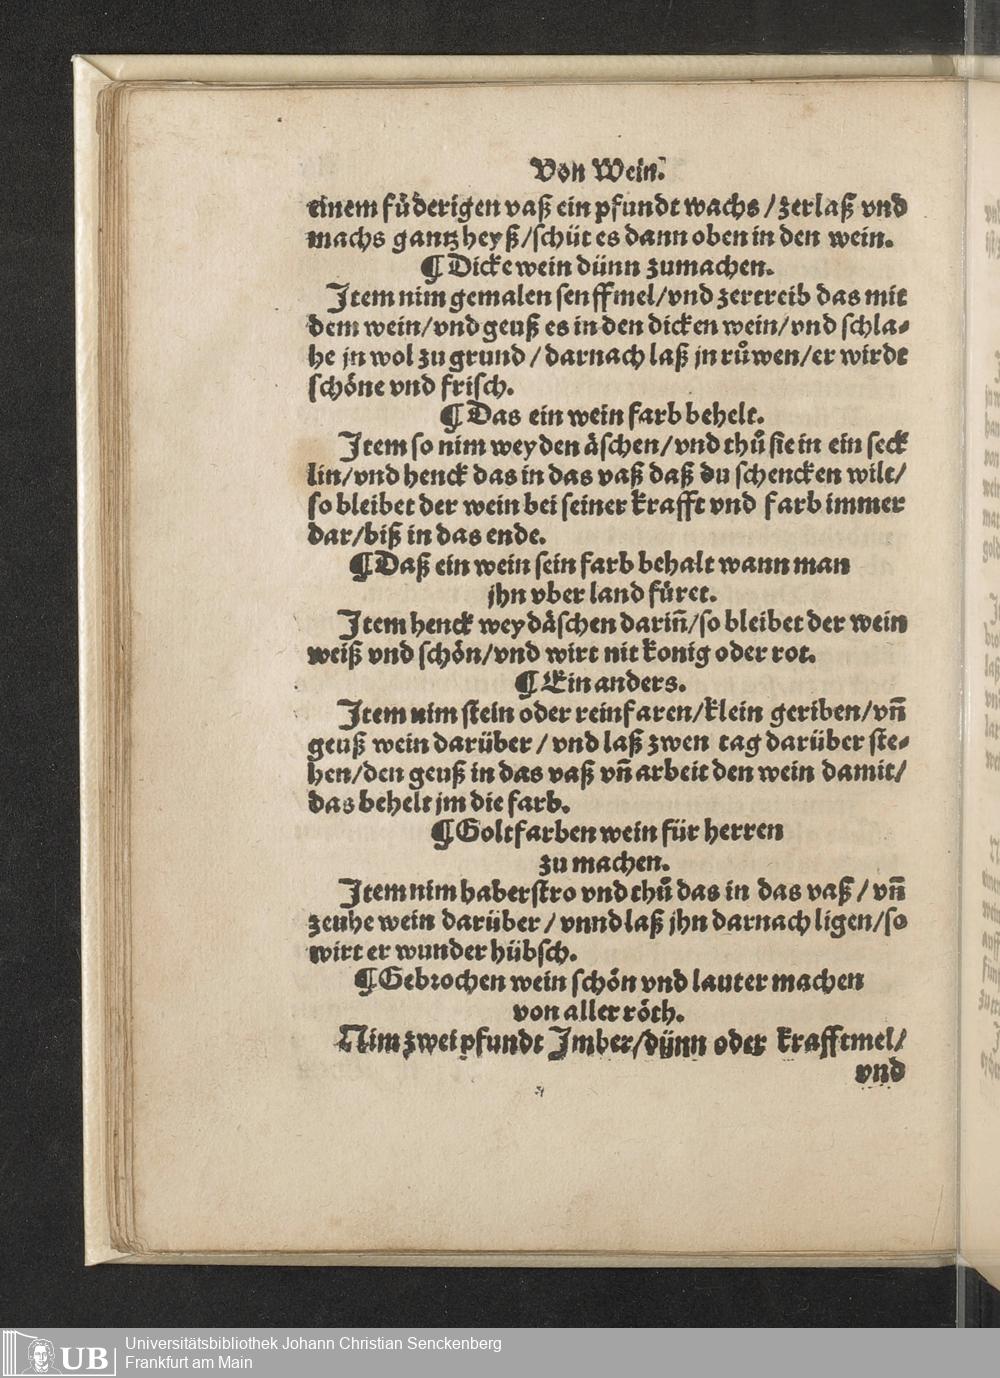 Von Wein.
einem fůderigen vaß ein pfundt wachs / zerlaß vnd
machs gantz heyß/schüt es dann oben in den wein.
¶ Dicke wein dünn zumachen.
Item nim gemalen senffmel/vnd zertreib das mit
dem wein/vnd geuß es in den dicken wein/vnd schla⸗
he jn wol zu grund / darnach laß jn růwen/er wirdt
schöne vnd frisch.
¶ Das ein wein farb behelt.
Item so nim weyden äschen/vnd thů sie in ein seck
lin/vnd henck das in das vaß daß du schencken wilt/
so bleibet der wein bei seiner krafft vnd farb immer
dar/biß in das ende.
¶ Daß ein wein sein farb behalt wann man
jhn vber land füret.
Item henck weydäschen dariñ/so bleibet der wein
weiß vnd schön/vnd wirt nit konig oder rot.
¶ Ein anders.
Item nim stein oder reinfaren/klein geriben/vñ
geuß wein darüber / vnd laß zwen tag darüber ste⸗
hen/den geuß in das vaß vñ arbeit den wein damit/
das behelt jm die farb.
¶ Goltfarben wein für herren
zu machen.
Item nim haberstro vnd thů das in das vaß / vñ
zeuhe wein darüber / vnnd laß jhn darnach ligen/so
wirt er wunder hübsch.
¶ Gebrochen wein schön vnd lauter machen
von aller röth.
Nim zwei pfundt Imber/dünn oder krafftmel/
vnd
UB
Universitätsbibliothek Johann Christian Senckenberg
Frankfurt am Main